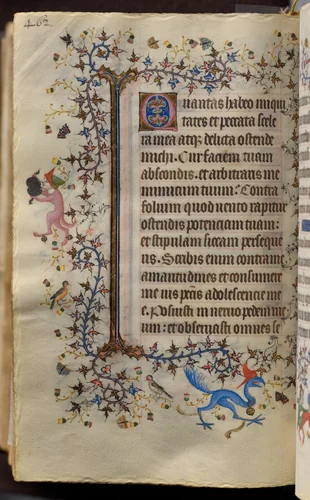 462
Quantas habeo iniqui
tates et peccata scele
ra mea atqz delicta ostende
michi. Cur faciem tuam
abscondis: et arbitraris me
inimicum tuum: Contra
folium quod uento rapitur
ostendis potenciam tuam:
et stipulam siccam perseque
ris. Scribis enim contra me
amaritudines et consumere
me uis pctis adolescencie me
e. Posuisti in neruo pedem me
um: et obseruasti omnes se